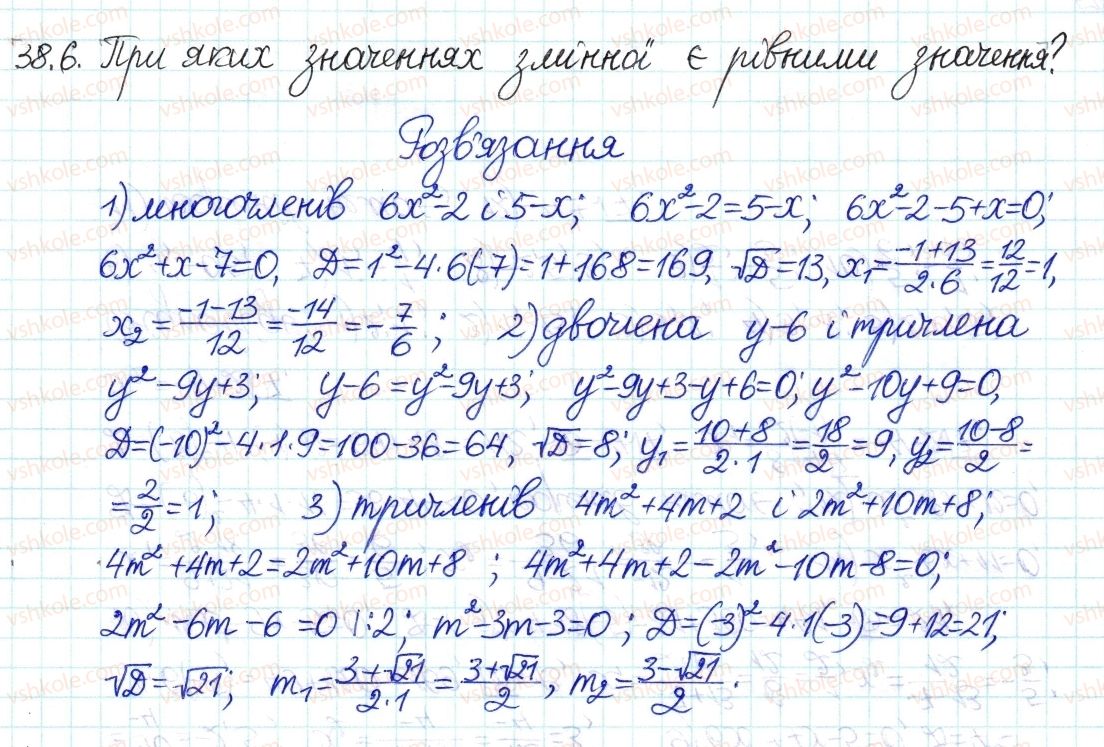 38.6. При яких значеннях змінної є рівними значення?
Розв'язання
1) многочленів 6x²-2 і 5-x; 6x²-2=5-x; 6x²-2-5+x=0;
6x²+x-7=0, D=1²-4·6(-7)=1+168=169, √D=13, x₁=(-1+13)/(2·6)=12/12=1,
x₂=(-1-13)/12=-14/12=-7/6; 2) двочлена y-6 і тричлена
y²-9y+3; y-6=y²-9y+3; y²-9y+3-y+6=0; y²-10y+9=0,
D=(-10)²-4·1·9=100-36=64, √D=8; y₁=(10+8)/(2·1)=18/2=9, y₂=(10-8)/2=
=2/2=1; 3) тричленів 4m²+4m+2 і 2m²+10m+8;
4m²+4m+2=2m²+10m+8; 4m²+4m+2-2m²-10m-8=0;
2m²-6m-6=0 |:2; m²-3m-3=0; D=(-3)²-4·1(-3)=9+12=21;
√D=√21; m₁=(3+√21)/(2·1)=(3+√21)/2, m₂=(3-√21)/2.